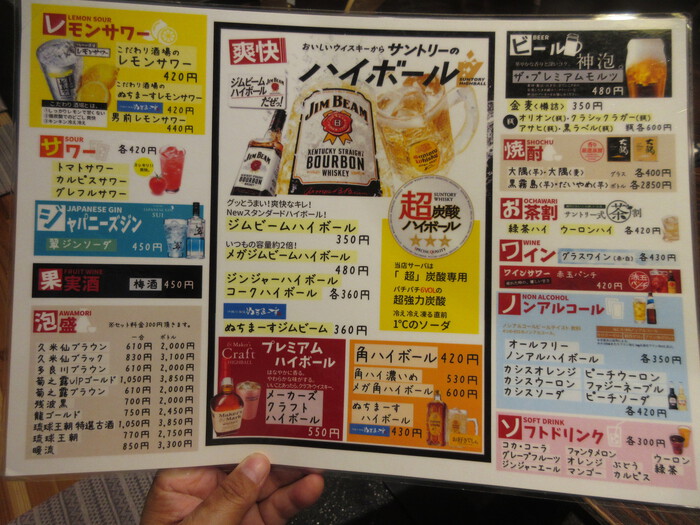 レモンサワー
LEMON SOUR
こだわり酒場の
レモンサワー
420円
こだわり酒場の
ぬちまーすレモンサワー
420円
男前レモンサワー
440円
サワー
SOUR
各420円
トマトサワー
カルピスサワー
グレフルサワー
ジャパニーズジン
JAPANESE GIN
翠ジンソーダ 450円
果実酒
FRUIT WINE
梅酒 450円
泡盛
AWAMORI
※セット料金300円頂きます。
一合 ボトル
久米仙ブラウン 610円 2,000円
久米仙ブラック 830円 3,100円
多良川ブラウン 610円 2,000円
菊之露VIPゴールド 1,050円 3,850円
菊之露ブラウン 610円 2,000円
残波黒 700円 2,000円
龍ゴールド 750円 2,450円
琉球王朝特選古酒 1,050円 3,850円
琉球王朝 770円 2,750円
暖流 850円 3,300円
爽快
おいしいウイスキーから サントリーの
ハイボール
SUNTORY HIGHBALL
ジムビーム
ハイボール
だぜっ!
JIM BEAM
KENTUCKY STRAIGHT
BOURBON
WHISKEY
グッとうまい!爽快なキレ!
Newスタンダードハイボール!
ジムビームハイボール
350円
いつもの容量約2倍!
メガジムビームハイボール
480円
ジンジャーハイボール
コークハイボール 各360円
ぬちまーすジムビーム 360円
SUNTORY WHISKY
超炭酸
ハイボール
当店サーバは
「超」炭酸専用
パチパチ6VOLの
超強力炭酸
冷え冷え凍る直前
1℃のソーダ
Maker's
Craft
HIGHBALL
プレミアム
ハイボール
はなやかに香る。
やわらかな味がする。
いいことあった、クラフトハイボール。
メーカーズ
クラフト
ハイボール
550円
角ハイボール 420円
角ハイ濃いめ 530円
メガ角ハイボール 600円
ぬちまーす
ハイボール
430円
ビール
BEER
神泡。
ザ・プレミアムモルツ
480円
金麦<樽詰> 350円
オリオン(瓶)・クラシックラガー(瓶)
アサヒ(瓶)・黒ラベル(瓶) 瓶各600円
焼酎
SHOCHU
大隅
大隅(芋)・大隅(麦) グラス 各400円
黒霧島(芋)だいやめ(芋) ボトル 各2850円
お茶割
OCHAWARI
サントリー式 茶割
緑茶ハイ ウーロンハイ
各420円
ワイン
WINE
グラスワイン(赤・白) 各430円
ワインサワー 赤玉パンチ
420円
ノンアルコール
NON ALCOHOL
オールフリー
ノンアルハイボール
各350円
カシスオレンジ ピーチウーロン
カシスウーロン ファジーネーブル
カシスソーダ ピーチソーダ
各420円
ソフトドリンク
SOFT DRINK
各300円
コカ・コーラ ファンタメロン ウーロン
グレープフルーツ オレンジ ぶどう 緑茶
ジンジャーエール マンゴー カルピス